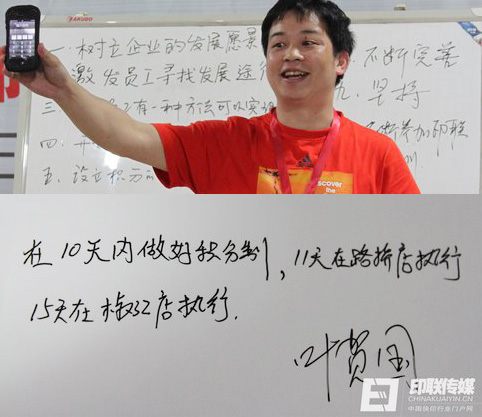 AKUBO
一.树立企业的发展愿景
不断完善
激发员工寻找发展途
九.坚持
三
有一种方法可以实
四.开
断参加印联
五.设立积分
训
iscover
the
在10天内做好积分制,11天在路桥店执行
15天在椒江店执行.
叶贺国
印联传媒
CHINAKUAIYIN.COM
中国快印行业门户网